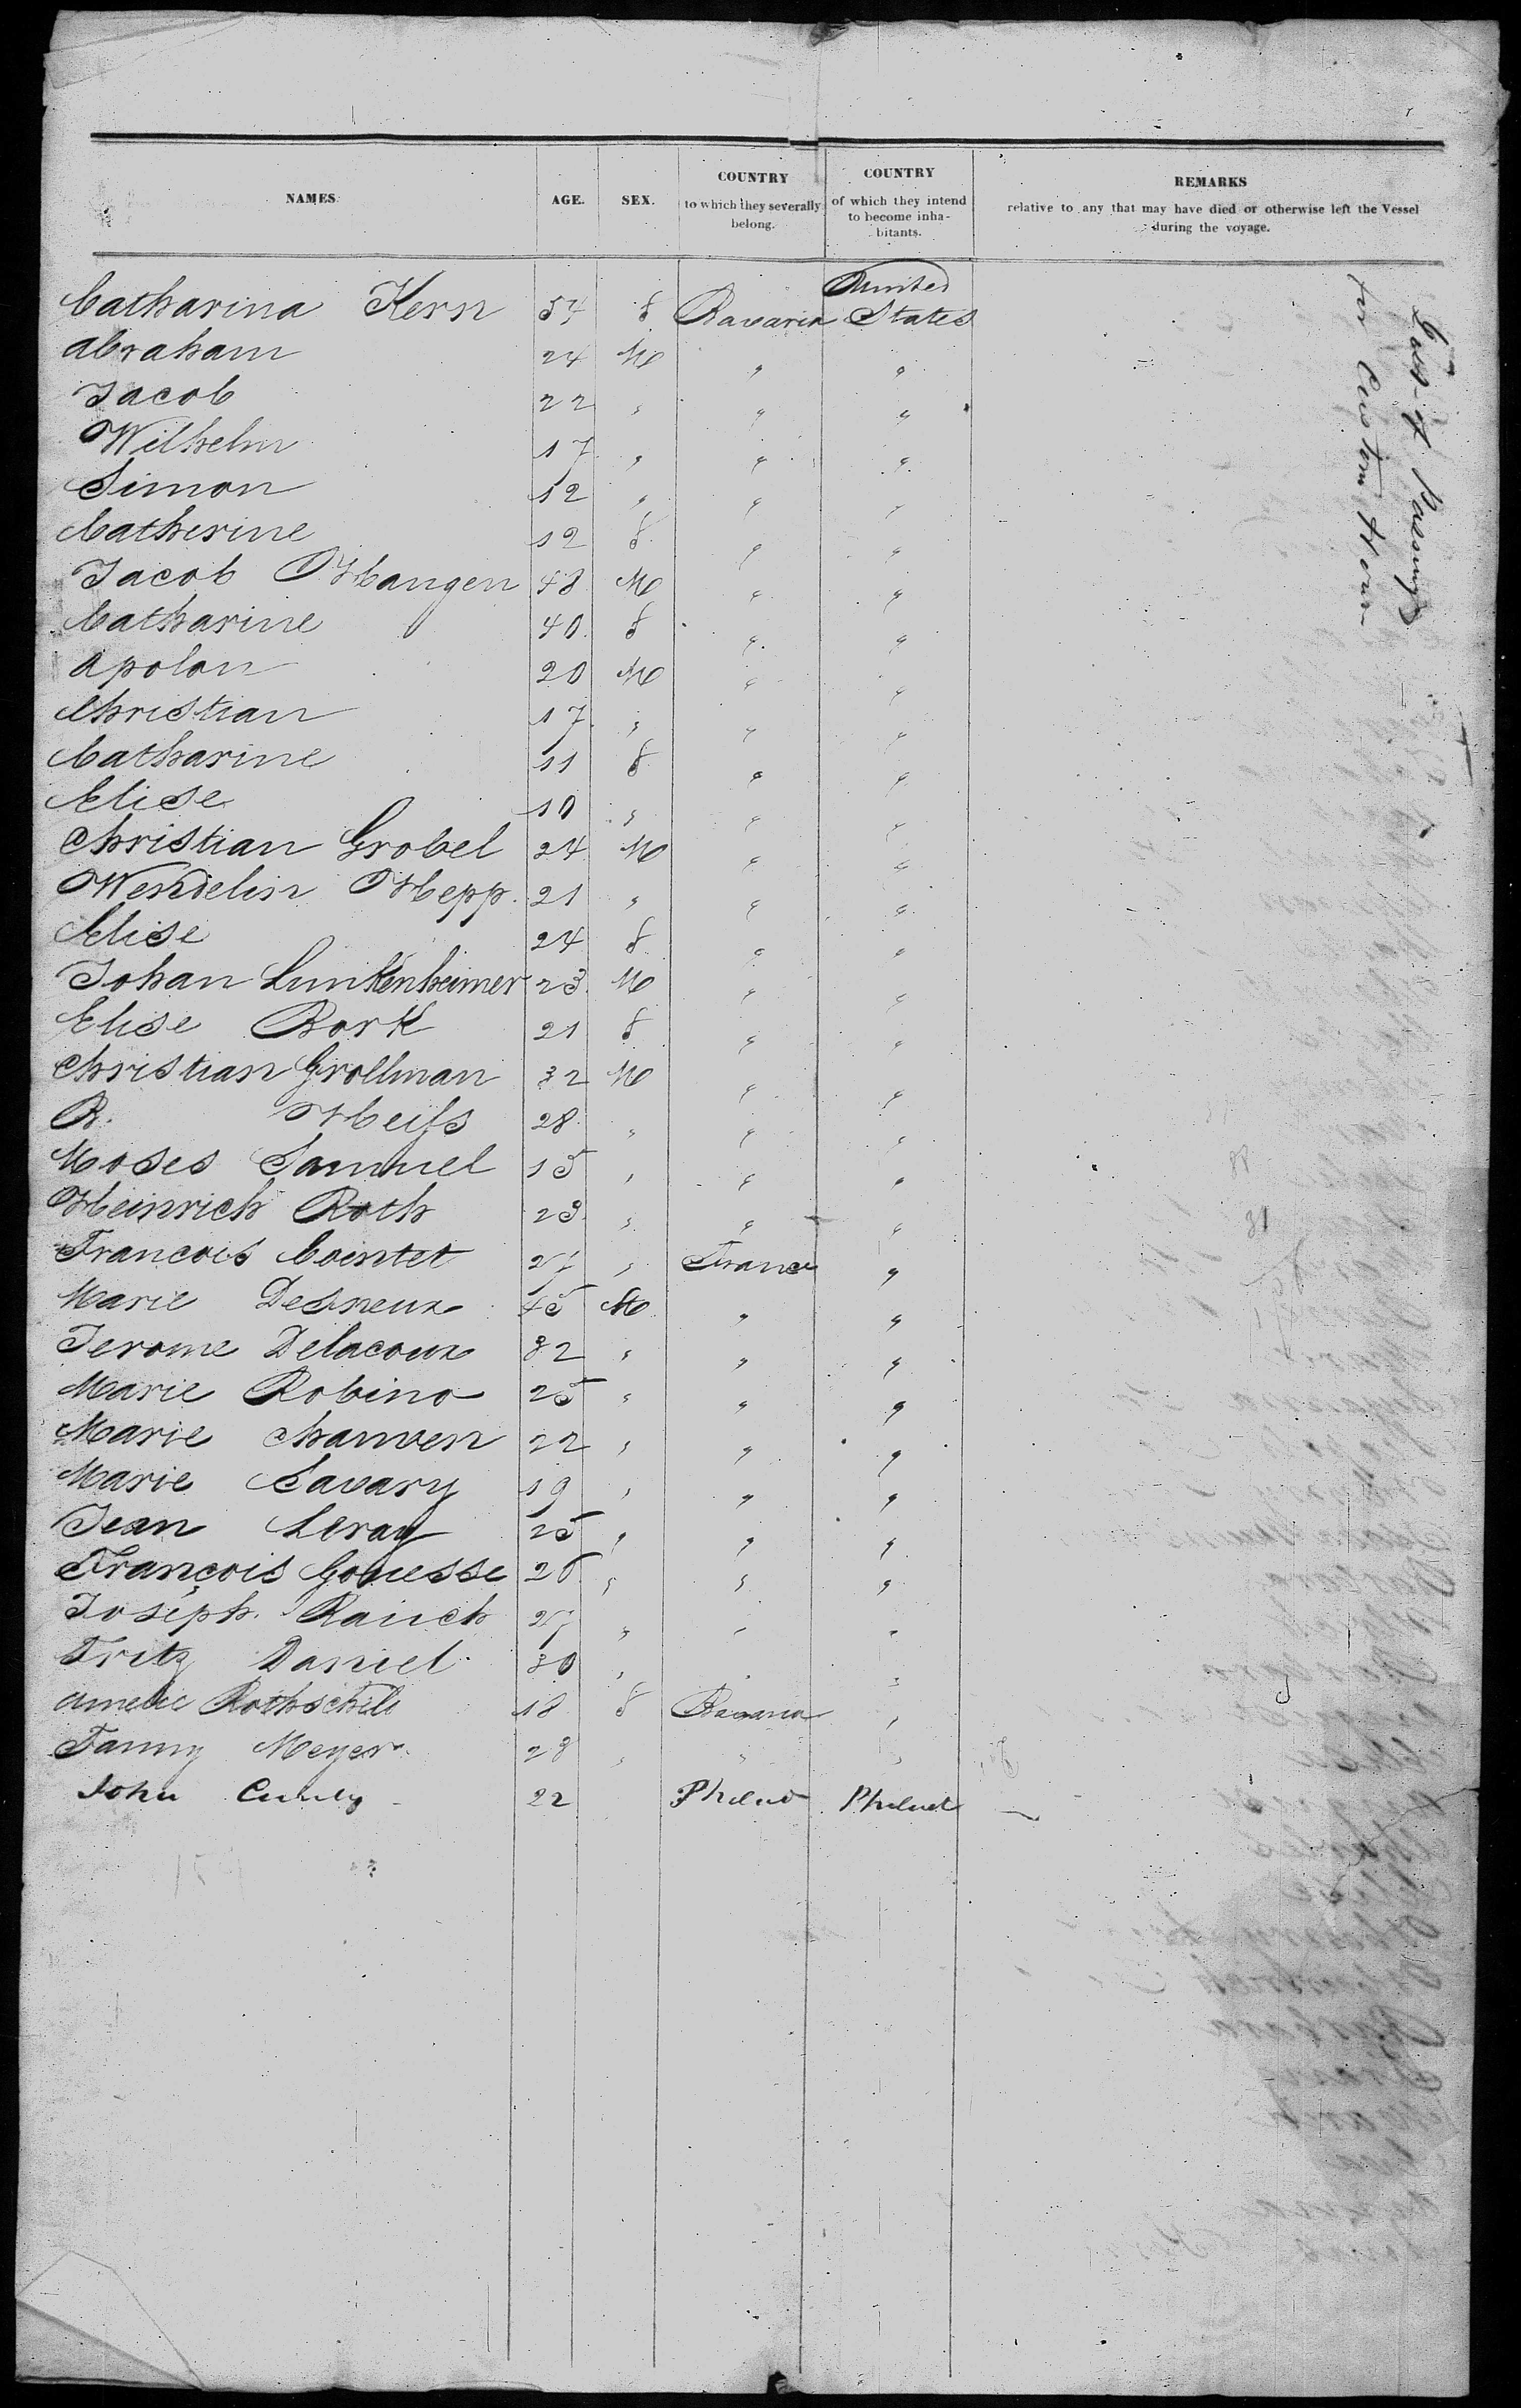 NAMES AGE. SEX. COUNTRY to which they severally belong. COUNTRY of which they intend to become inhabitants. REMARKS relative to any that may have died or otherwise left the Vessel during the voyage.
Catharina Kern 54 f Bavaria United States
Abraham 24 M " "
Jacob 22 " " "
Wilhelm 17 " " "
Simon 12 " " "
Catherine 12 f " "
Jacob Hangen 48 M " "
Catharine 40 f " "
Apolon 20 M " "
Christian 17 " " "
Catharine 11 f " "
Elise 10 " " "
Christian Grobel 24 M " "
Wendelin Hepp. 21 " " "
Elise 24 f " "
Johan Lunkenheimer 23 M " "
Elise Bork 21 f " "
Christian Grollman 32 M " "
B. Heifs 28 " " "
Moses Samuel 15 " " "
Heinrich Roth 23 " " "
Francois Cointet 27 " France "
Marie Desneux 45 M " "
Jerome Delacoux 32 " " "
Marie Robino 25 " " "
Marie Chanven 22 " " "
Marie Savary 19 " " "
Jean Leray 25 " " "
François Gouesse 26 " " "
Joseph Rauch 27 " " "
Fritz Daniel 30 " " "
Amelie Rothschild 18 f Bavaria "
Fanny Meyer 28 " " "
John 22
List of
for Custom House